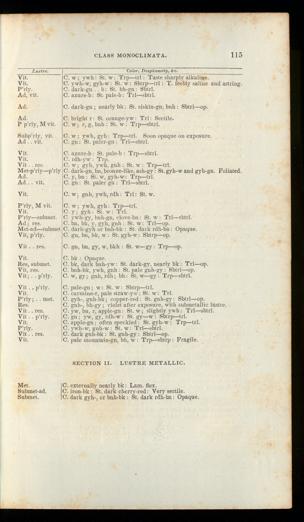 CLASS MONOCLINATA. 115
Lustre. Color, Diaphaneity, &c.
Vit. C. w; ywh: St. w: Trp—trl: Taste sharply alkaline.
Vit. C. ywh-w, gyh-w: St. w: Sbtrp—trl: T. feebly saline and astring.
P'rly. C. dark-gn . . b: St. bh-gn: Sbtrl.
Ad, vit. C. azure-b: St. pale-b: Trl—sbtrl.
Ad. C. dark-gn; nearly bk: St. siskin-gn, bnh: Sbtrl—op.
Ad. C. bright r: St. orange-yw: Trl: Sectile.
P p'rly, M vit. C. w; r, g, bnh: St. w: Trp—sbtrl.
Subp'rly, vit. C. w; ywh, gyh: Trp—trl. Soon opaque on exposure.
Ad . . vit. C. gn: St. paler-gn: Trl—sbtrl.
Vit. C. azure-b: St. pale-b: Trp—sbtrl.
Vit. C. rdh-yw: Trp.
Vit . . res. C. w; gyh, ywh, gnh: St. w: Trp—trl.
Met-p'rly—p'rly C. dark-gn, bn, bronze-like, ash-gy: St. gyh-w and gyh-gn. Foliated.
Ad. C. y, bn: St. w, gyh-w: Trp—trl.
Ad . . vit. C. gn: St. paler gn: Trl—sbtrl.
Vit. C. w; gnh, ywh, rdh: Trl: St. w.
P'rly, M vit. C. w; ywh, gyh: Trp—trl.
Vit. C. y; gyh: St. w: Trl.
P'rly—submet. C. ywh-gy, bnh-gn, clove-bn: St. w: Trl—sbtrl.
Ad; res. C. bn, bk, r, gyh, gnh: St. w: Trl—op.
Met-ad—submet C. dark-gyh or bnh-bk: St. dark rdh-bn: Opaque.
Vit, p'rly. C. gn, bn, bk, w: St. gyh-w: Sbtrp—op.
Vit . . res. C. gn, bn, gy, w, bkh: St. w—gy: Trp—op.
Vit. C. bk: Opaque.
Res, submet. C. bk, dark bnh-yw: St. dark-gy, nearly bk: Trl—op.
Vit, res. C. bnh-bk, ywh, gnh: St. pale gnh-gy: Sbtrl—op.
Vit; . . p'rly. C. w, gy; gnh, rdh; bh: St. w—gy: Trp—sbtrl.
Vit . . p'rly. C. pale-gn; w: St. w: Sbtrp—trl.
Vit. C. carmine-r, pale straw-yw: St. w: Trl.
P'rly; . . met. C. gyh-, gnh-bk; copper-red: St. gnh-gy: Sbtrl—op.
Res. C. gnh-, bh-gy; violet after exposure, with submetallic lustre.
Vit . . res. C. yw, bn, r, apple-gn: St. w; slightly ywh: Trl—sbtrl.
Vit . . p'rly. C. gn; yw, gy, rdh-w: St. gy—w: Sbtrp—trl.
Vit. C. apple-gn; often speckled: St. gyh-w: Trp—trl.
P'rly. C. ywh-w, gnh-w: St. w: Trl—sbtrl.
Vit . . res. C. dark gnh-bk: St. gnh-gy: Sbtrl—op.
Vit. C. pale mountain-gn, bh, w: Trp—sbtrp: Fragile.
SECTION II. LUSTRE METALLIC.
Met. C. externally nearly bk: Lam. flex.
Submet-ad. C. iron-bk: St. dark cherry-red: Very sectile.
Submet. C. dark gyh-, or bnh-bk: St. dark rdh-bn: Opaque.